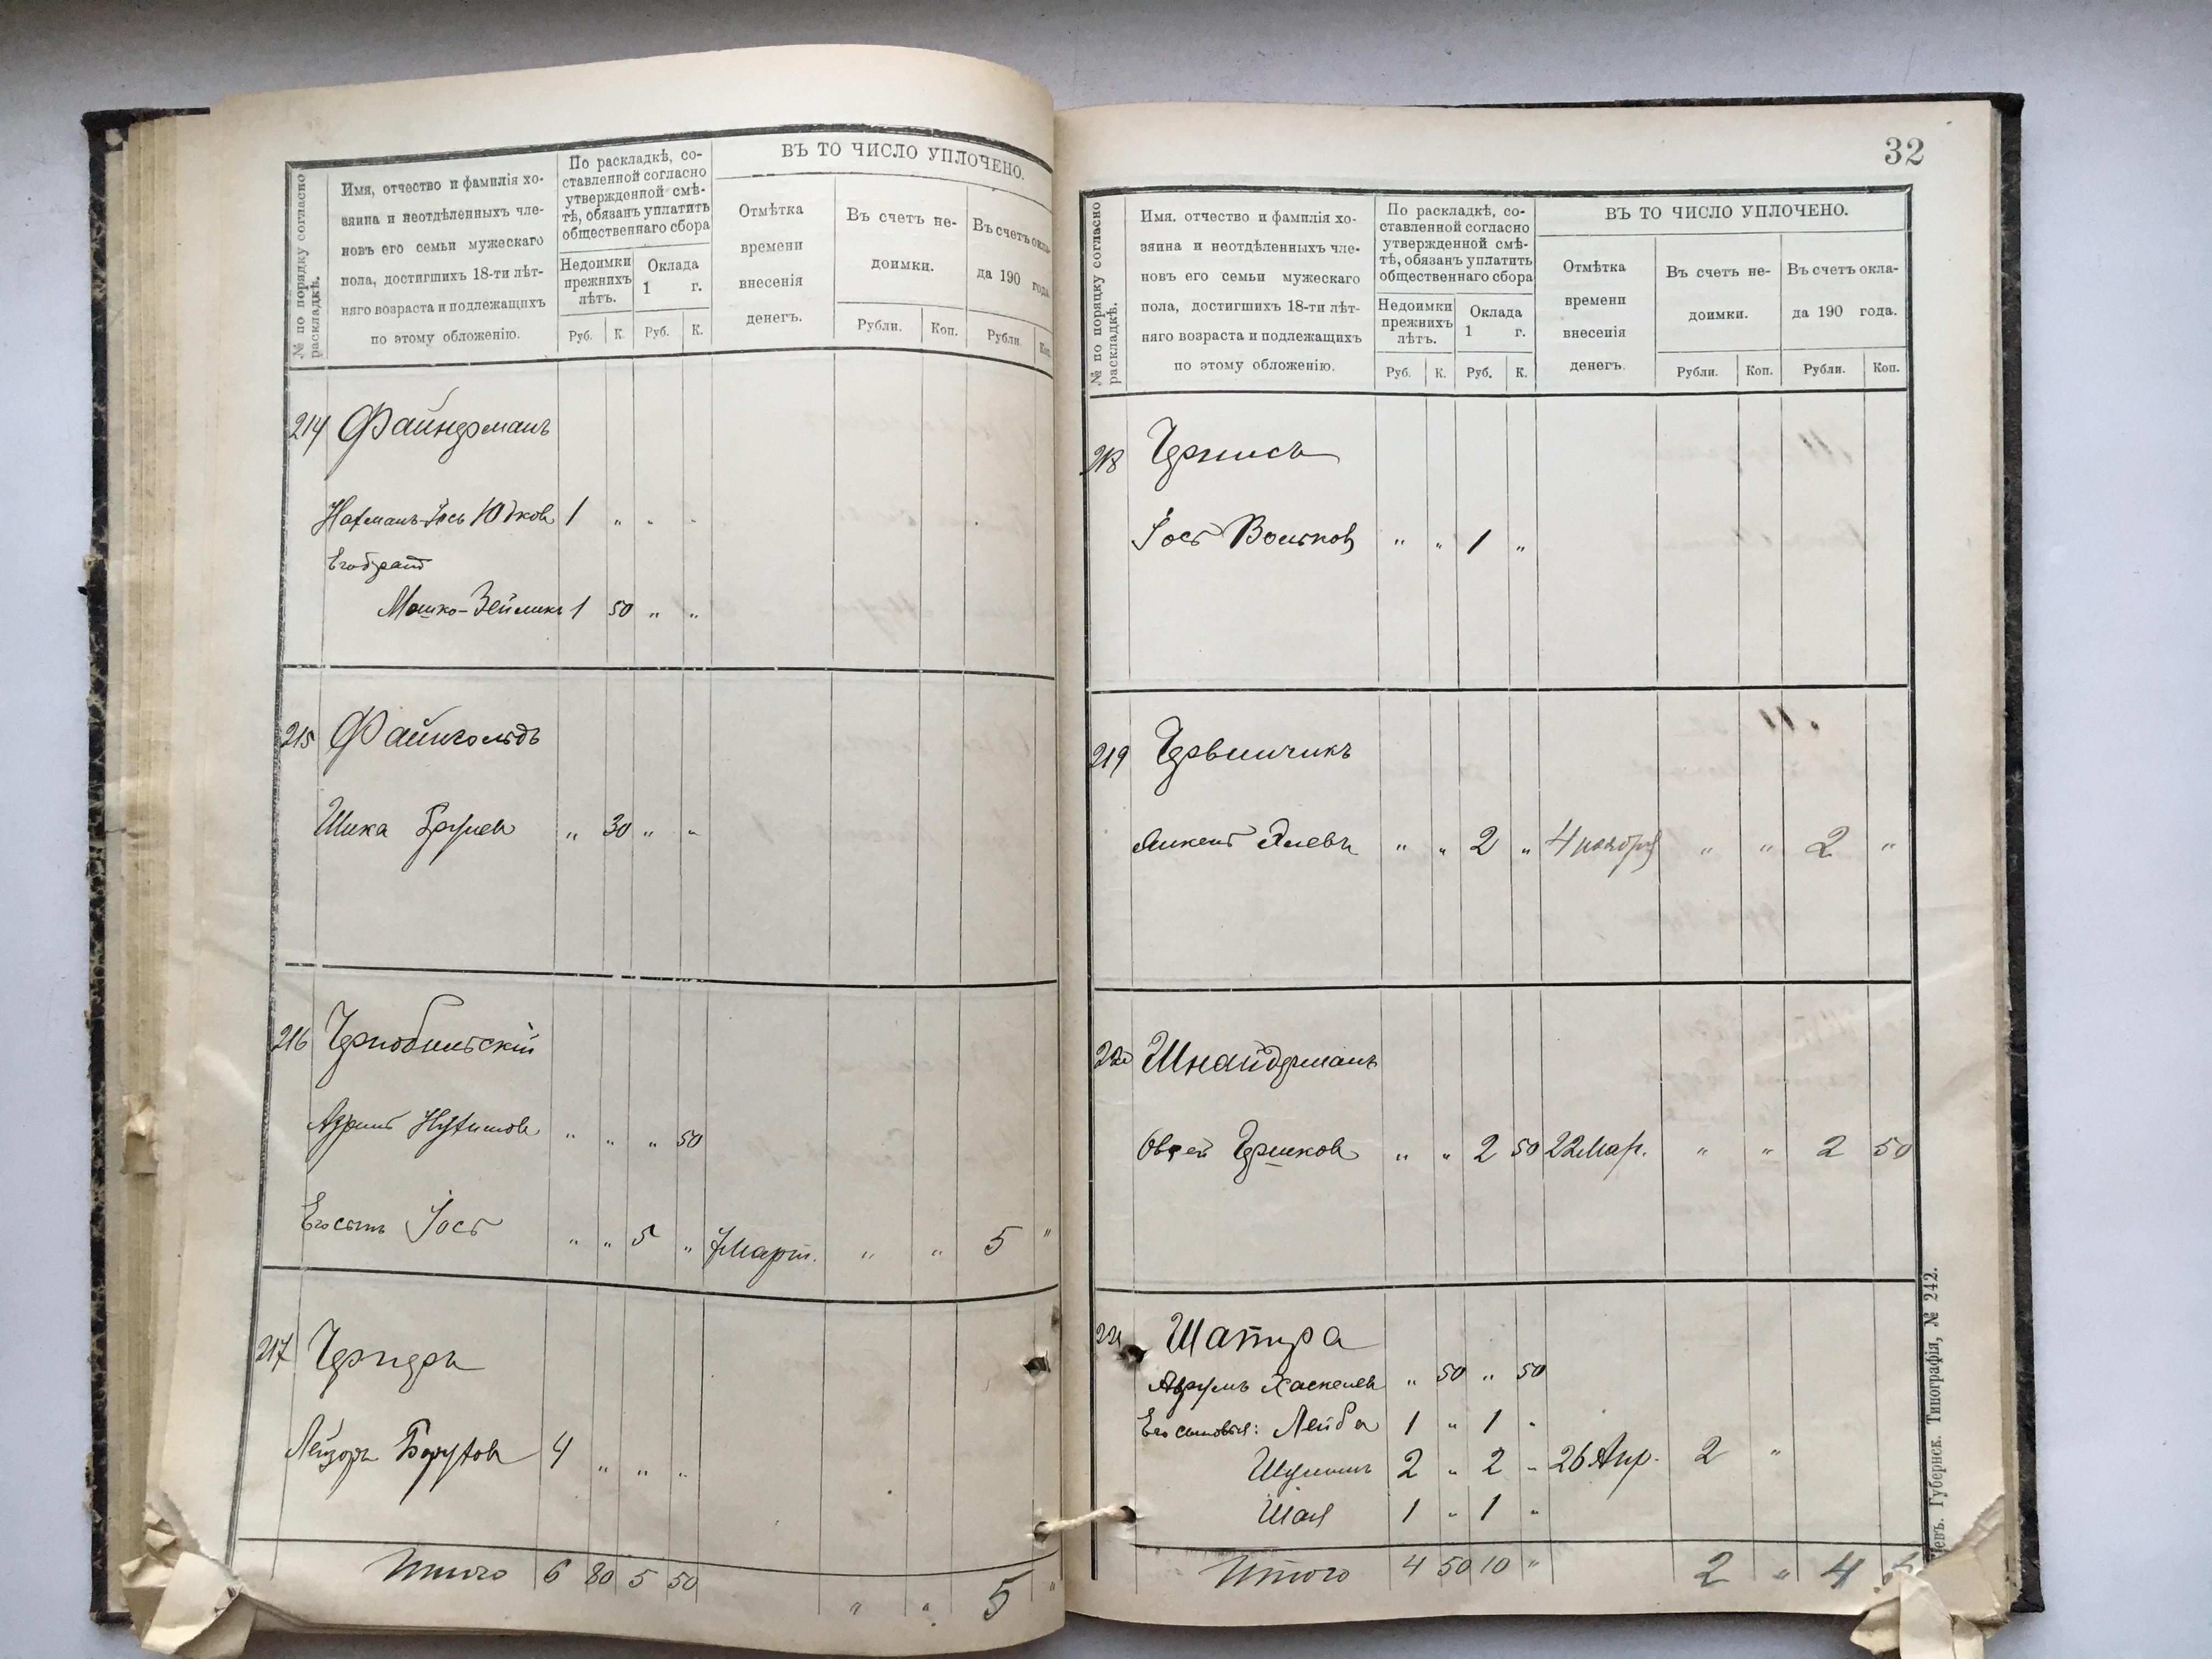 № по порядку согласно раскладкѣ.
Имя, отчество и фамилія хо-
зяина и неотдѣленныхъ чле-
новъ его семьи мужескаго
пола, достигшихъ 18-ти лѣт-
няго возраста и подлежащихъ
по этому обложенію.
По раскладкѣ, со-
ставленной согласно
утвержденной смѣ-
тѣ, обязанъ уплатить
общественнаго сбора
Недоимки
прежнихъ
лѣтъ.
Оклада
1 г.
Руб. К. Руб. К.
ВЪ ТО ЧИСЛО УПЛОЧЕНО.
Отмѣтка
времени
внесенія
денегъ.
Въ счетъ не-
доимки.
Рубли. Коп.
Въ счетъ окла-
да 190 года
Рубли. Коп.
214 Файнерманъ
Нахманъ-Іось Юдковъ 1 " " "
Его братъ
Мошко-Зейликъ 1 50 " "
215 Файнгольдъ
Шика " 30 " "
216 Чернобыльскій
Нухимовъ " " " 50
Его сынъ Іось " " 5 " 7 Март. " " 5 "
217 Чернеръ
Лейзоръ Боруховъ 4 " " "
Итого 6 80 5 50 " " 5 "
32
№ по порядку согласно раскладкѣ.
Имя. отчество и фамилія хо-
зяина и неотдѣленныхъ чле-
новъ его семьи мужескаго
пола, достигшихъ 18-ти лѣт-
няго возраста и подлежащихъ
по этому обложенію.
По раскладкѣ, со-
ставленной согласно
утвержденной смѣ-
тѣ, обязанъ уплатить
общественнаго сбора
Недоимки
прежнихъ
лѣтъ.
Оклада
1 г.
Руб. К. Руб. К.
ВЪ ТО ЧИСЛО УПЛОЧЕНО.
Отмѣтка
времени
внесенія
денегъ.
Въ счетъ не-
доимки.
Рубли. Коп.
Въ счетъ окла-
да 190 года.
Рубли. Коп.
218 Чернисъ
Іось Вольковъ " " 1 "
219 Червинчикъ
" " 2 " 4 ноября " " 2 "
220 Шнайдерманъ
Овсей Гершковъ " " 2 50 22 Мар. " " 2 50
221 Шапира
Аврумъ Хаскелевъ " 50 " 50
Его сыновья: Лейба 1 " 1 "
Шулимъ 2 " 2 " 26 Апр. 2 "
Шая 1 " 1 "
Итого 4 50 10 " 2 " 4
Губернск. Типографія, № 242.